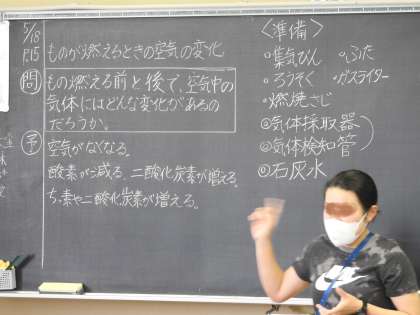 5/18
P.15
ものが燃えるときの空気の変化
問
もの燃える前と後で、空気中の
気体にはどんな変化があるの
だろうか。
予
空気がなくなる。
酸素が減る、二酸化炭素が増える。
ちっ素や二酸化炭素が増える。
〈準備〉
◦集気びん ◦ふた
◦ろうそく ◦ガスライター
◦燃焼さじ
◎気体採取器
◎気体検知管
◎石灰水